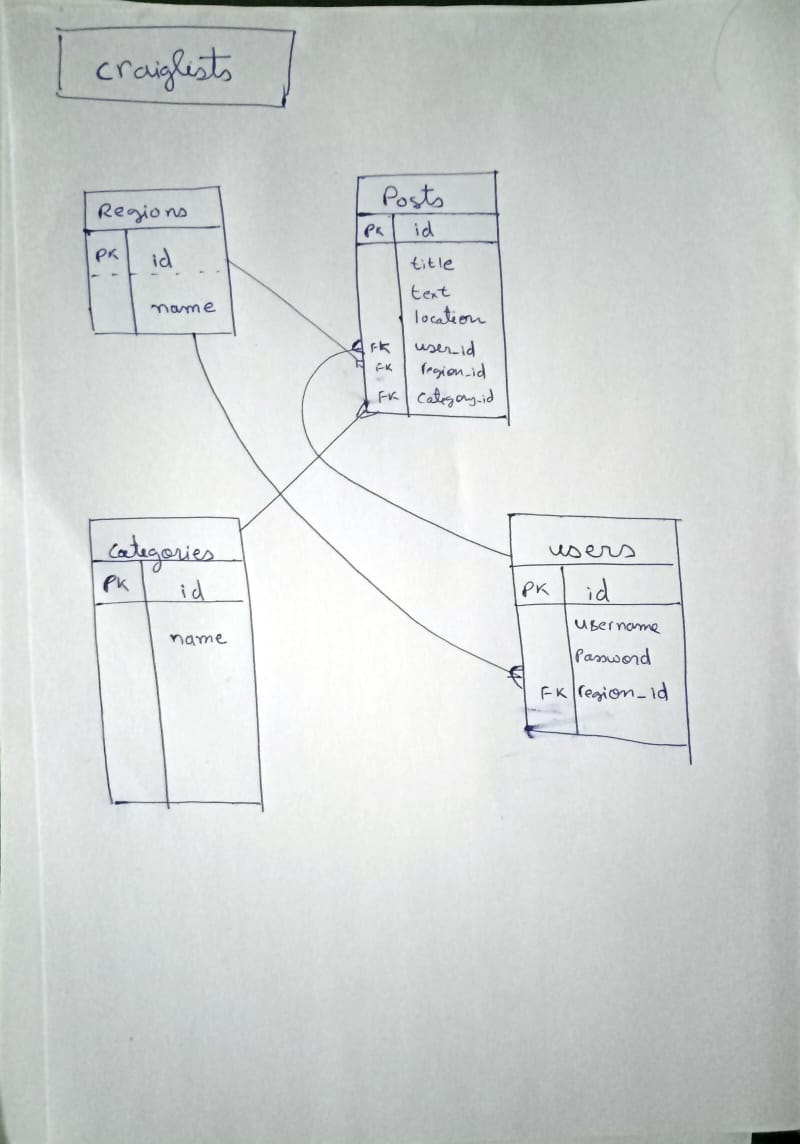 craiglists
Regions
PK id
name
Posts
PK id
title
text
location
FK user_id
FK region_id
FK Category_id
Categories
PK id
name
users
PK id
username
Password
FK region_id